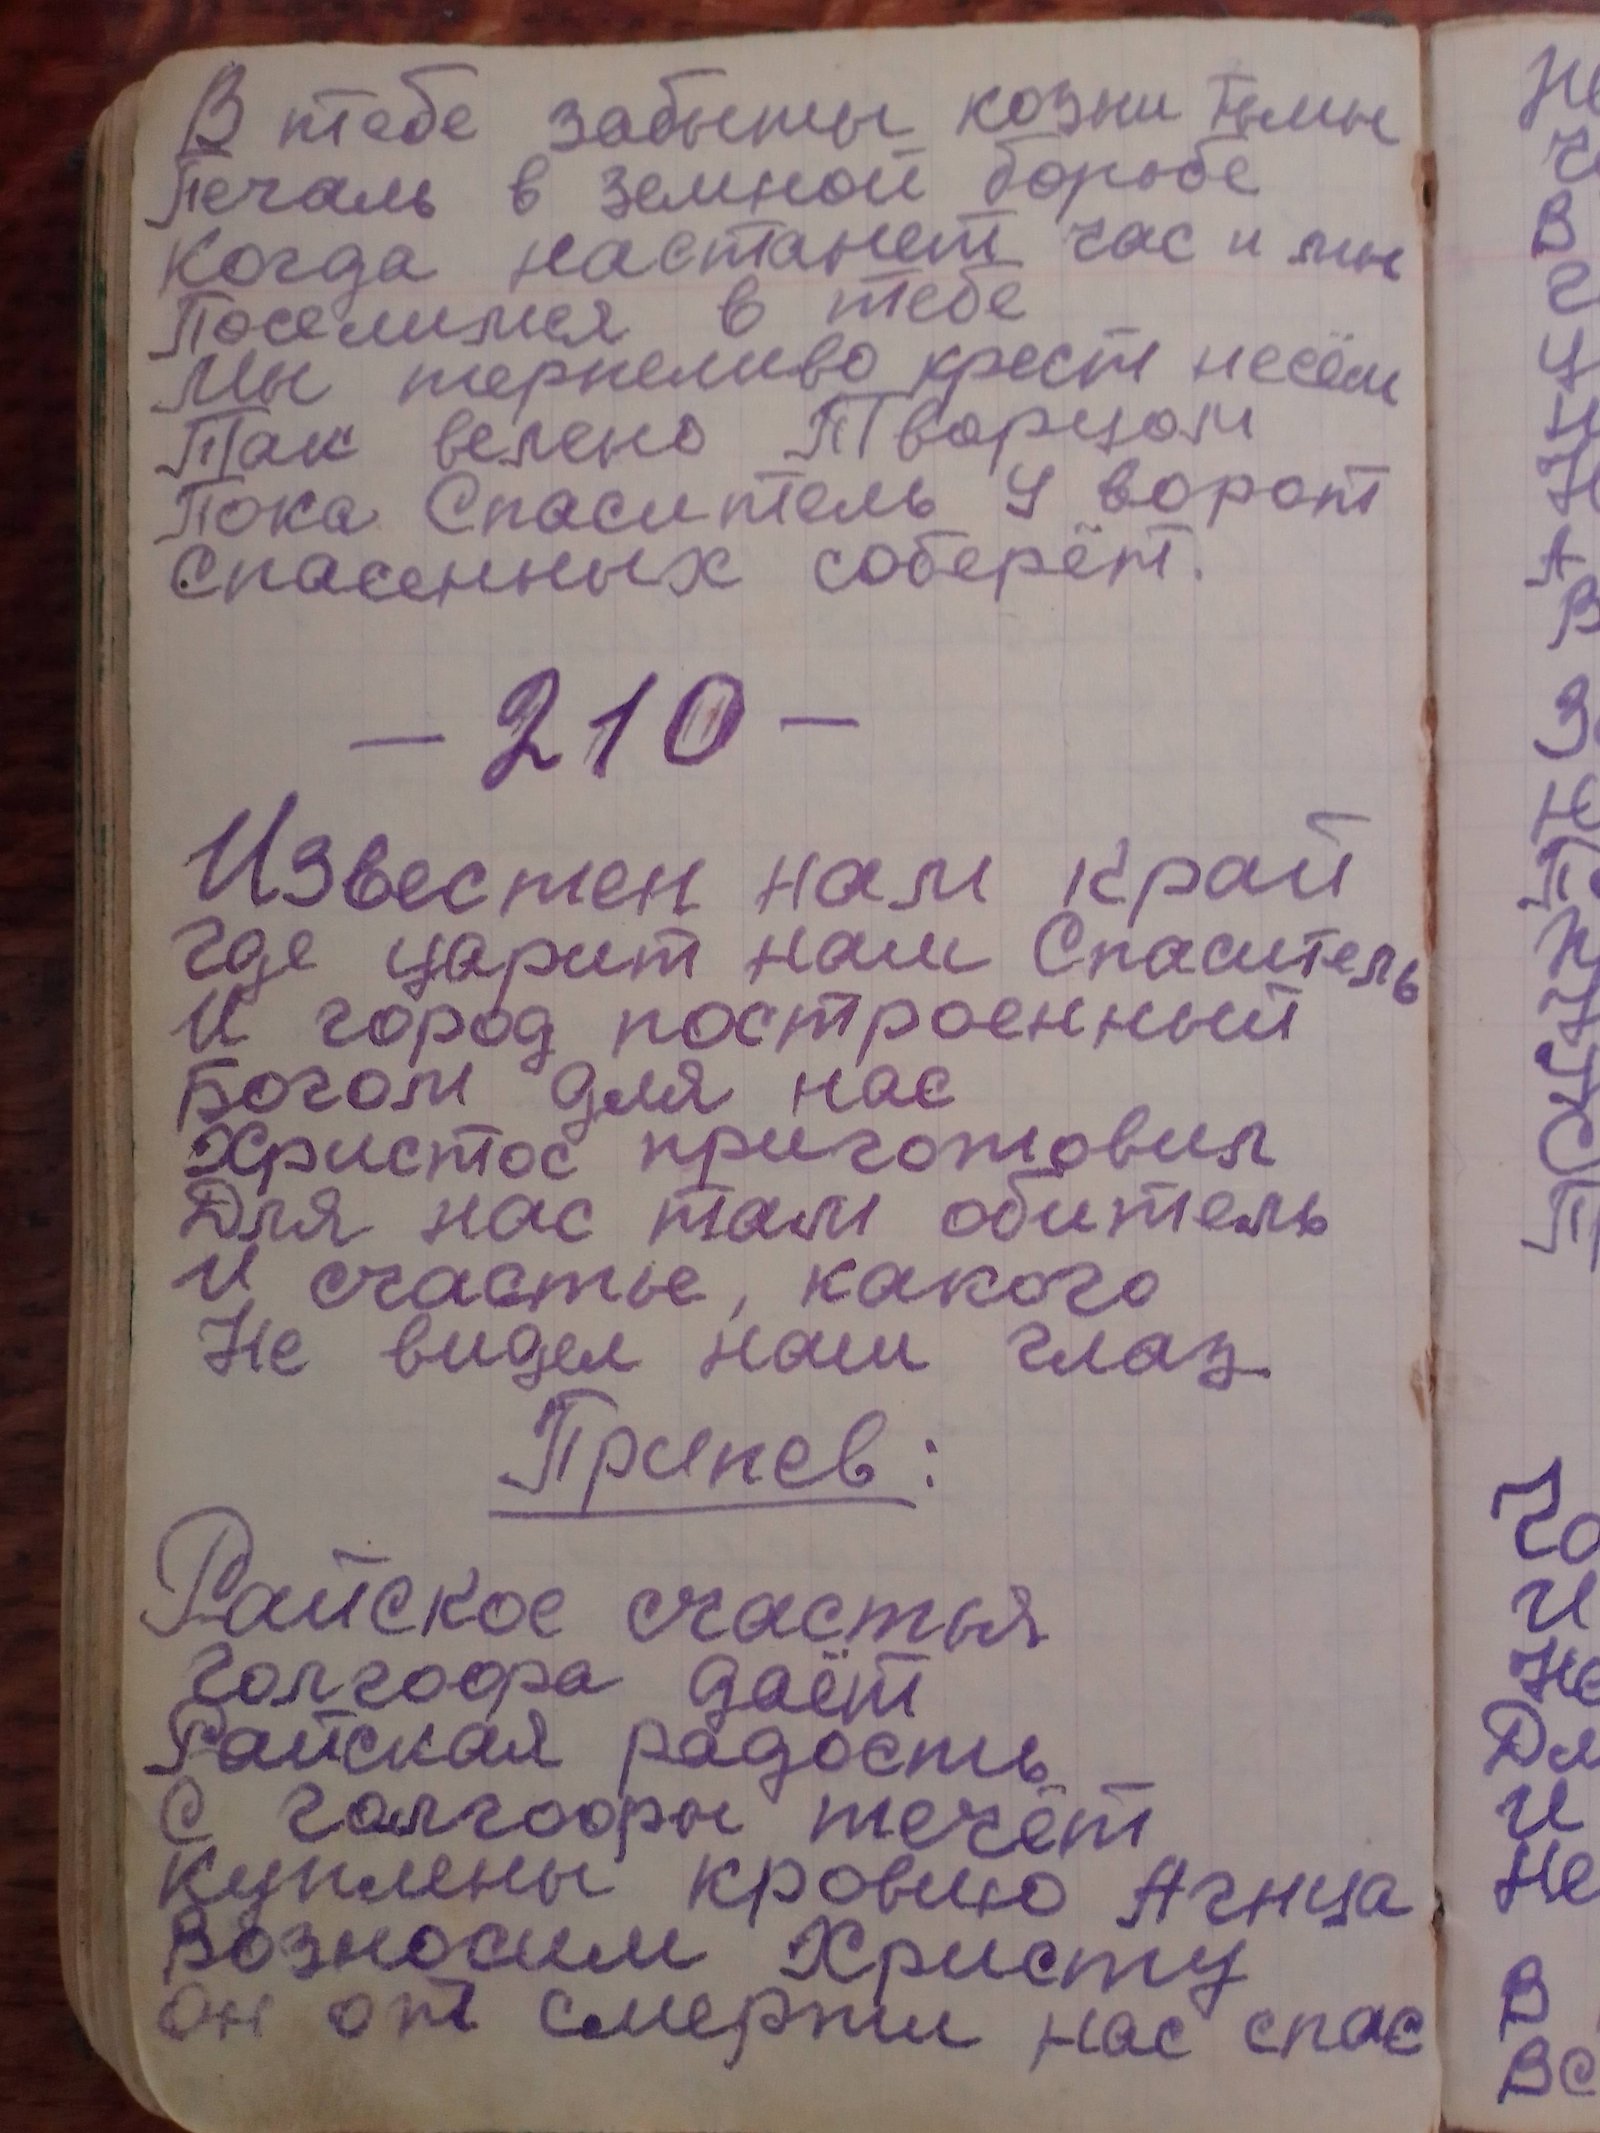 В тебе забыты козни тьмы
Печаль в земной борьбе
Когда настанет час и мы
Поселимся в тебе
Мы терпеливо крест несём
Так велено Творцом
Пока Спаситель у ворот
Спасенных соберёт.
- 210 -
Известен нам край
где царит наш Спаситель
И город построенный
Богом для нас
Христос приготовил
Для нас там обитель
И счастье, какого
Не видел наш глаз
Припев:
Райское счастья
голгофа даёт
Райская радость
с голгофы течёт
куплены кровию Агнца
возносим Христу
он от смерти нас спас